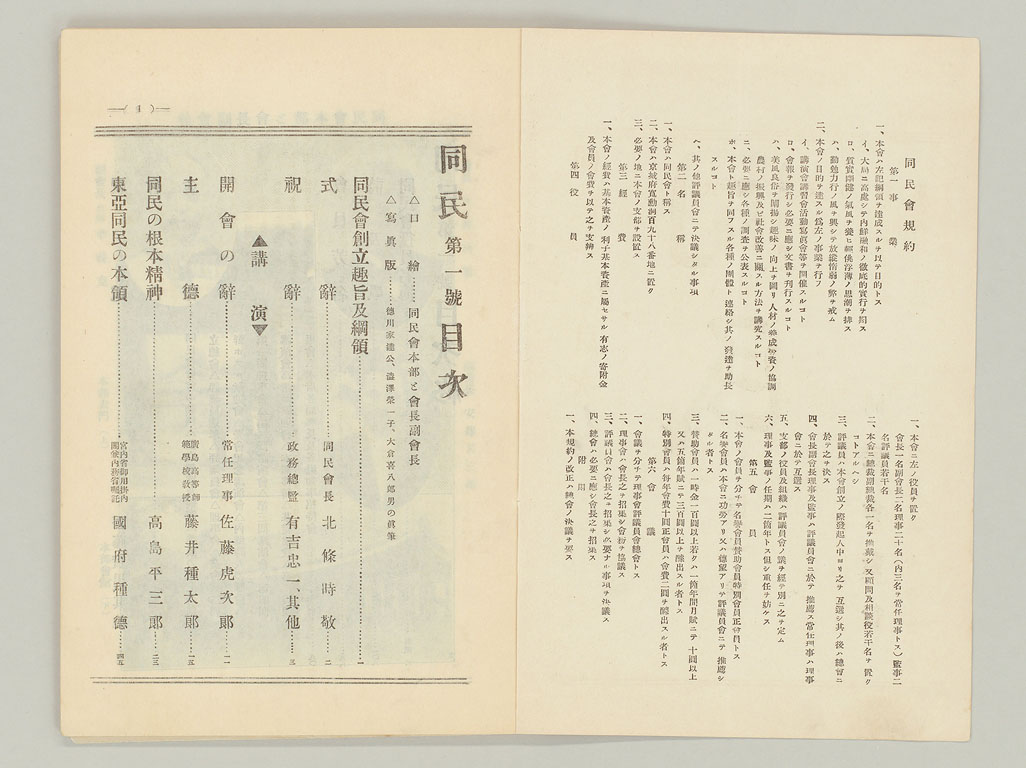 同民會規約
第一事業
一、本會ハ左記綱領ヲ達成スルヲ以テ目的トス
イ、大局ニ高處シテ內鮮融和ノ徹底的實行ヲ期ス
ロ、質實剛健ノ氣風ヲ養ヒ輕佻浮薄ノ思潮ヲ排ス
ハ、勤勉力行ノ風ヲ興シテ放縱惰弱ノ弊ヲ戒ム
二、本會ノ目的ヲ達スル爲左ノ事業ヲ行フ
イ、講演會講習會活動寫眞會等ヲ開催スルコト
ロ、會報ヲ發行シ必要ニ應シ文書ヲ刊行スルコト
ハ、美風良俗ヲ闡揚シ趣味ノ向上ヲ圖リ人材ノ養成勞資ノ協調
農村ノ振興及ビ社會改善ニ關スル方法ヲ講究スルコト
ニ、必要ニ應シ各種ノ調査ヲ公表スルコト
ホ、本會ト趣旨ヲ同フスル各種ノ團體ト連絡シ其ノ發達ヲ助長
スルコト
ヘ、其ノ他評議員會ニテ決議シタル事項
第二名稱
一、本會ハ同民會ト稱ス
二、本會ハ京城府寬勳洞百九十八番地ニ置ク
三、必要ノ地ニ本會ノ支部ヲ設置ス
第三經費
一、本會ノ經費ハ基本資產ノ利子基本資產ニ屬セサル有志ノ寄附金
及會員ノ會費ヲ以テ之ヲ支辨ス
第四役員
一、本會ニ左ノ役員ヲ置ク
會長一名副會長二名理事二十名(內三名ヲ常任理事トス)監事二
名評議員若干名
二、本會ニ總裁副總裁各一名ヲ推戴シ又顧問及相談役若干名ヲ置ク
コトアルヘシ
三、評議員ハ本會創立ノ際發起人中ヨリ之ヲ互選シ其ノ後ハ總會ニ
於テ之ヲ決ス
四、會長副會長理事及監事ハ評議員會ニ於テ推薦ス常任理事ハ理事
會ニ於テ互選ス
五、支部ノ役員及組織ハ評議員會ノ議ヲ經テ別ニ之ヲ定ム
六、理事及監事ノ任期ハ二箇年トス但シ重任ヲ妨ケス
第五會員
一、本會ノ會員ヲ分チテ名譽會員贊助會員特別會員正會員トス
二、名譽會員ハ本會ニ功勞アリ又ハ德望アリテ評議員會ニテ推薦シ
タル者トス
三、贊助會員ハ一時金一百圓以上若クハ一箇年間月賦ニテ十圓以上
又ハ五箇年賦ニテ三百圓以上ヲ醵出スル者トス
四、特別會員ハ每年會費十圓正會員ハ會費二圓ヲ醵出スル者トス
第六會議
一、會議ヲ分チテ理事會評議員會總會トス
二、理事會ハ會長之ヲ招集シ會務ヲ協議ス
三、評議員會ハ會長之ヲ招集シ必要ナル事項ヲ決議ス
四、總會ハ必要ニ應シ會長之ヲ招集ス
附則
一、本規約ノ改正ハ總會ノ決議ヲ要ス
—( 1 )—
同民第一號目次
△口繪……同民會本部と會長副會長
△寫眞版……德川家達公、澁澤榮一子、大倉喜八郞男の眞筆
同民會創立趣旨及綱領……一
式辭……同民會長 北條時敬……二
祝辭……政務總監 有吉忠一、其他……三
▲講演▼
開會の辭……常任理事 佐藤虎次郞……一一
主德……廣島高等師範學校敎授 藤井種太郞……一五
同民の根本精神……高島平三郞……二三
東亞同民の本領……宮內省御用掛內閣兼內務省囑託 國府種德……四五